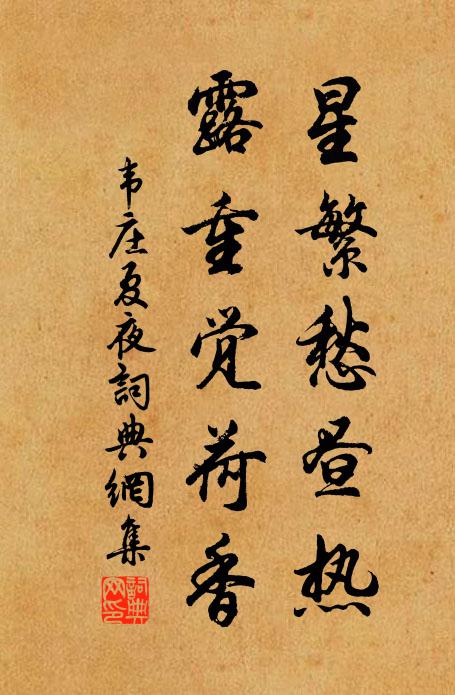 星繁愁昼热
露重觉荷香
韦庄夏夜詞典網集
詞典
网印